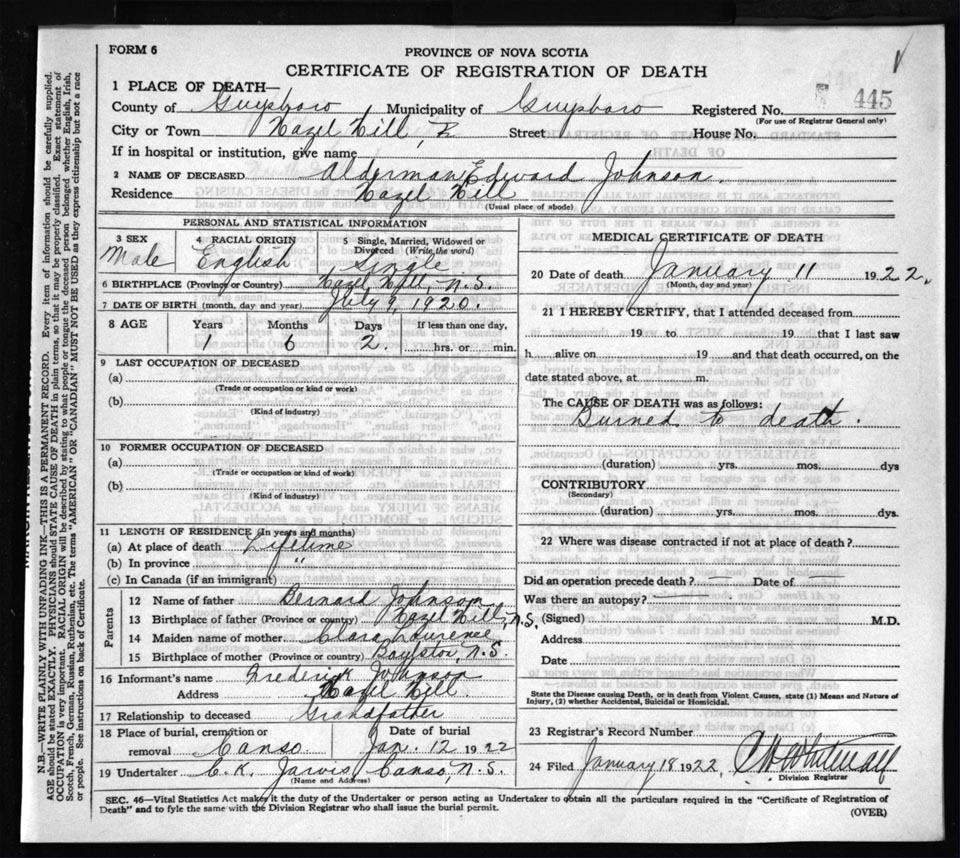 FORM 6
PROVINCE OF NOVA SCOTIA
CERTIFICATE OF REGISTRATION OF DEATH
1 PLACE OF DEATH—
County of Guysboro Municipality of Guysboro Registered No. 445
(For use of Registrar General only)
City or Town Hazel Hill Street House No.
If in hospital or institution, give name
2 NAME OF DECEASED Alderman Edward Johnson.
Residence Hazel Hill
(Usual place of abode)
PERSONAL AND STATISTICAL INFORMATION
3 SEX Male
4 RACIAL ORIGIN English
5 Single, Married, Widowed or Divorced (Write the word) Single
6 BIRTHPLACE (Province or Country) Hazel Hill, N.S.
7 DATE OF BIRTH (month, day and year) July 9, 1920.
8 AGE Years Months Days If less than one day,
1 6 2. hrs. or min.
9 LAST OCCUPATION OF DECEASED
(a)
(Trade or occupation or kind or work)
(b)
(Kind of industry)
10 FORMER OCCUPATION OF DECEASED
(a)
(Trade or occupation or kind of work)
(b)
(Kind of industry)
11 LENGTH OF RESIDENCE (in years and months)
(a) At place of death Lifetime
(b) In province "
(c) In Canada (if an immigrant)
Parents
12 Name of father Bernard Johnson
13 Birthplace of father (Province or country) Hazel Hill, N.S.
14 Maiden name of mother Clara Lurence
15 Birthplace of mother (Province or country) N.S.
16 Informant's name Frederick Johnson
Address Hazel Hill
17 Relationship to deceased Grandfather
18 Place of burial, cremation or removal Canso Date of burial Jan. 12 1922
19 Undertaker C. K. Jarvis Canso N.S.
(Name and Address)
MEDICAL CERTIFICATE OF DEATH
20 Date of death January 11 1922.
(Month, day and year)
21 I HEREBY CERTIFY, that I attended deceased from
19 to 19 , that I last saw
h alive on 19 and that death occurred, on the
date stated above, at m.
The CAUSE OF DEATH was as follows:
Burned to death.
(duration) yrs. mos. dys
CONTRIBUTORY
(Secondary)
(duration) yrs. mos. dys.
22 Where was disease contracted if not at place of death?
Did an operation precede death? — Date of —
Was there an autopsy?
(Signed) M.D.
Address
Date
State the Disease causing Death, or in death from Violent Causes, state (1) Means and Nature of
Injury, (2) whether Accidental, Suicidal or Homicidal.
23 Registrar's Record Number
24 Filed January 18 1922
Division Registrar
SEC. 46—Vital Statistics Act makes it the duty of the Undertaker or person acting as Undertaker to obtain all the particulars required in the "Certificate of Registration of
Death" and to fyle the same with the Division Registrar who shall issue the burial permit.
(OVER)
N.B.—WRITE PLAINLY WITH UNFADING INK—THIS IS A PERMANENT RECORD. Every item of information should be carefully supplied.
AGE should be stated EXACTLY. PHYSICIANS should STATE CAUSE OF DEATH in plain terms, so that it may be properly classified. Exact statement of
OCCUPATION is very important. RACIAL ORIGIN will be described by stating to what people or tongue the deceased person belonged whether English, Irish,
Scotch, French, German, Russian, Ruthenian, etc. The terms "AMERICAN" OR "CANADIAN" MUST NOT BE USED as they express citizenship but not a race
or people. See instructions on back of Certificate.